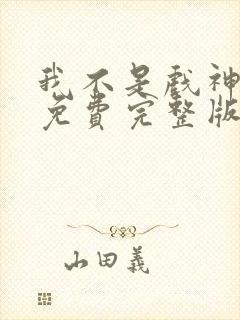 我不是戲神
免費完整版
山田義